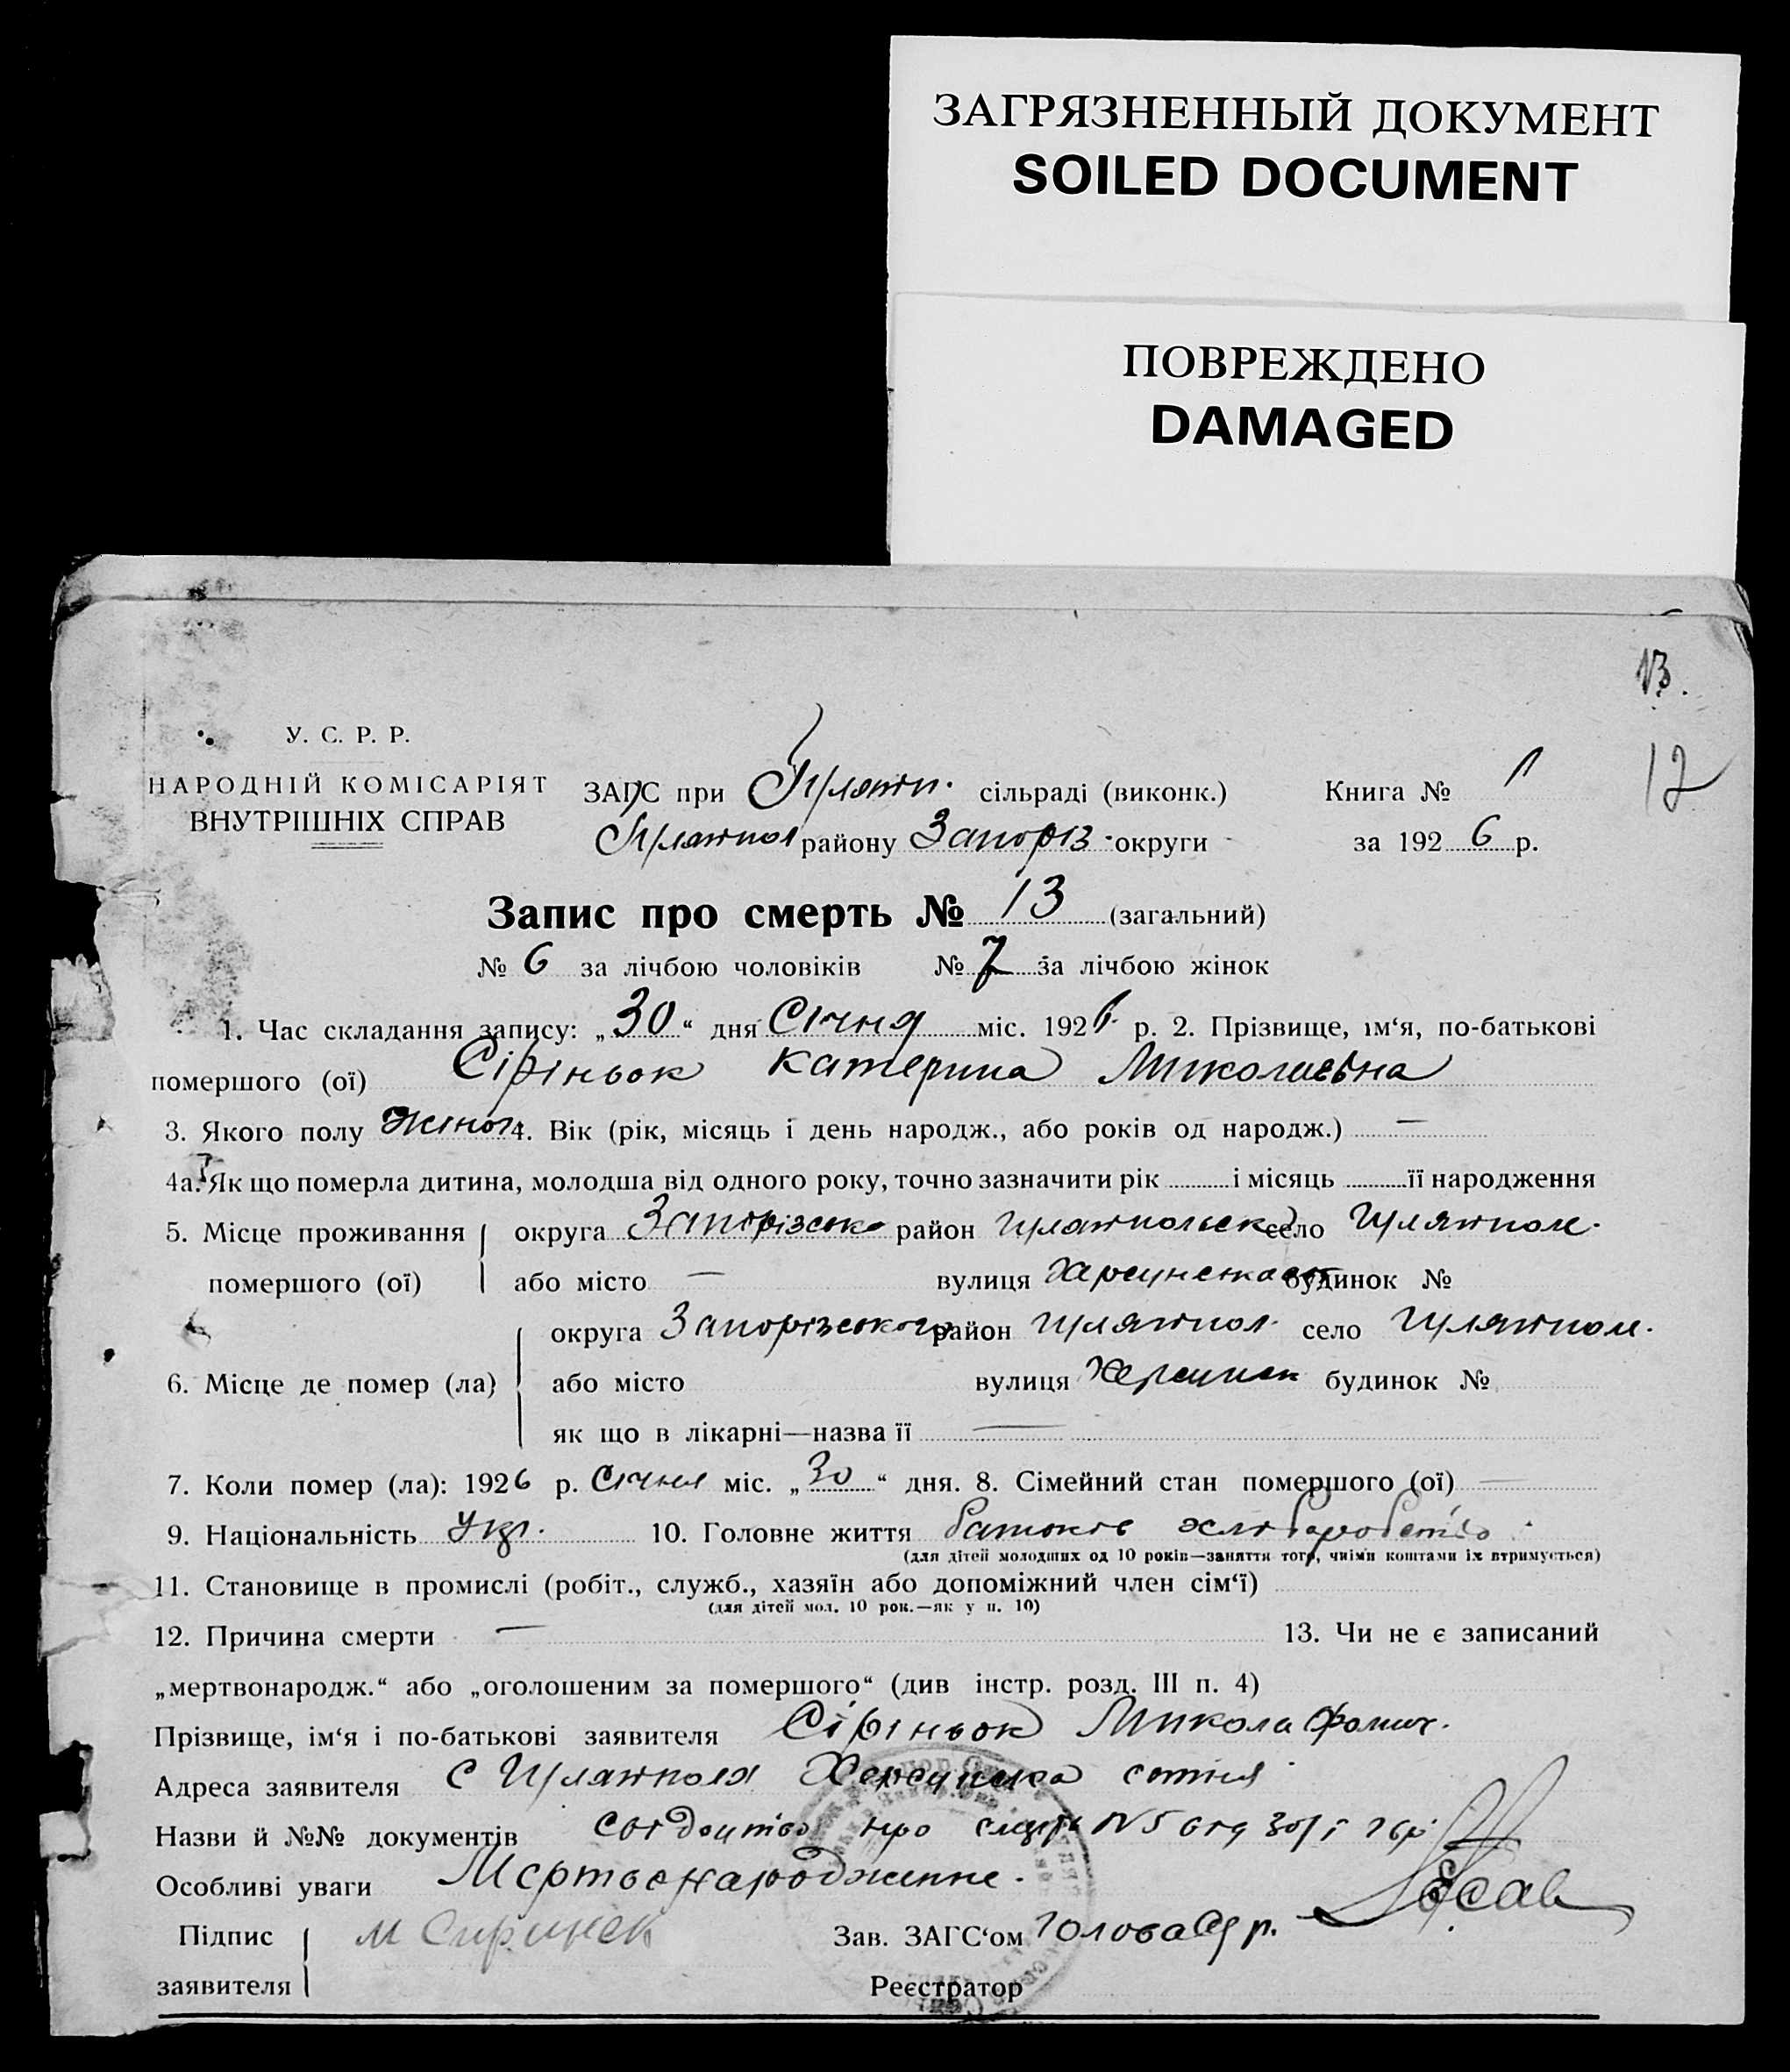 ЗАГРЯЗНЕННЫЙ ДОКУМЕНТ
SOILED DOCUMENT
ПОВРЕЖДЕНО
DAMAGED
13.
12
У. С. Р. Р.
НАРОДНІЙ КОМІСАРІЯТ
ВНУТРІШНІХ СПРАВ
ЗАГС при Гуляйп. сільраді (виконк.) Книга № 1
Гуляйпол району Запоріз. округи за 1926 р.
Запис про смерть № 13 (загальний)
№ 6 за лічбою чоловіків № 7 за лічбою жінок
1. Час складання запису: „30“ дня Січня міс. 1926 р. 2. Прізвище, ім‘я, по-батькові
помершого (ої) Сіріньок Катерина Миколаєвна
3. Якого полу жіноч. 4. Вік (рік, місяць і день народж., або років од народж.) —
4а. Як що померла дитина, молодша від одного року, точно зазначити рік і місяць її народження
5. Місце проживання округа Запорізськ район Гуляйпольськ село Гуляйполе.
помершого (ої) або місто — вулиця будинок №
округа Запорізського район Гуляйпол. село Гуляйполе.
6. Місце де помер (ла) або місто вулиця Херсунск будинок №
як що в лікарні—назва її —
7. Коли помер (ла): 1926 р. Січня міс. „30“ дня. 8. Сімейний стан помершого (ої) —
9. Національність Укр. 10. Головне життя батьков хліборобство.
(для дітей молодших од 10 років—заняття того, чиїми коштами їх втримується)
11. Становище в промислі (робіт., служб., хазяїн або допоміжний член сім‘ї)
(для дітей мол. 10 рок.—як у п. 10)
12. Причина смерти — 13. Чи не є записаний
„мертвонародж.“ або „оголошеним за помершого“ (див інстр. розд. III п. 4)
Прізвище, ім‘я і по-батькові заявителя Сіріньок Микола Фомич.
Адреса заявителя с Гуляйполя Херсунска сотня
Назви й №№ документів про смерть №5 від 30/I 26р
Особливі уваги Мертвенародженне.
Підпис М Сиринек Зав. ЗАГС‘ом Голова с/р.
заявителя Реєстратор